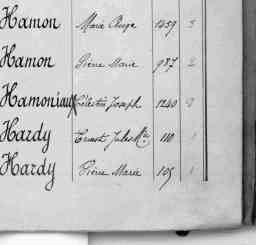 Hamon Marie Ange 1459 3
Hamon Pierre Marie 987 2
Hamoniaux Célestin Joseph 1240
Hardy Ernest Jules Mie 110 1
Hardy Pierre Marie 105 1